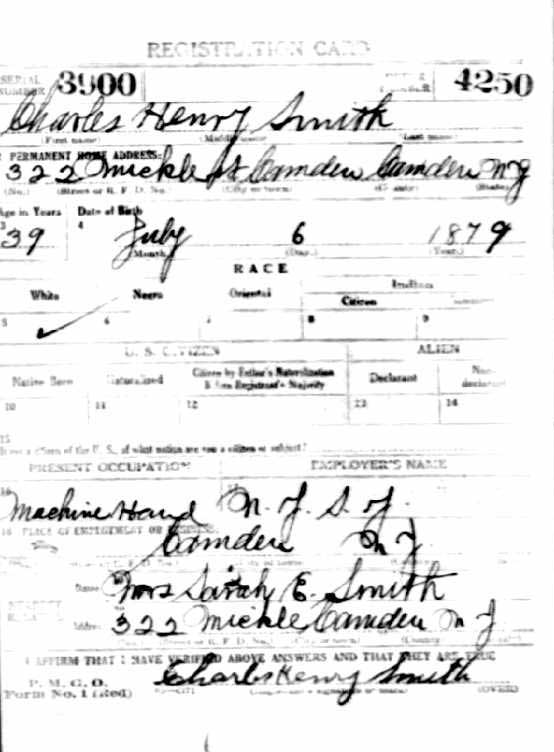 REGISTRATION CARD
SERIAL NUMBER 3900 ORDER NUMBER 4250
Charles Henry Smith
(First name) (Middle name) (Last name)
PERMANENT HOME ADDRESS:
322 Mickle St Camden Camden N J
(No.) (Street or R. F. D. No.) (City or town) (County) (State)
Age in Years Date of Birth
3 4
39 July 6 1879
(Month) (Day) (Year)
RACE
White Negro Oriental Indian
Citizen
5 6 7 8 9
U. S. CITIZEN ALIEN
Native Born Naturalized Citizen by Father's Naturalization Before Registrant's Majority Declarant Non-declarant
10 11 12 13 14
15
If not a citizen of the U. S., of what nation are you a citizen or subject?
PRESENT OCCUPATION EMPLOYER'S NAME
16
Machine Hand N. J. S. J.
18 PLACE OF EMPLOYMENT OR BUSINESS
Camden N J
Name Mrs Sarah E. Smith
NEAREST RELATIVE
Address 322 Mickle Camden N J
(No.) (Street or R. F. D. No.) (City or town) (County) (State)
I AFFIRM THAT I HAVE VERIFIED ABOVE ANSWERS AND THAT THEY ARE TRUE
P. M. G. O.
Form No. 1 (Red) Charles Henry Smith
(OVER)